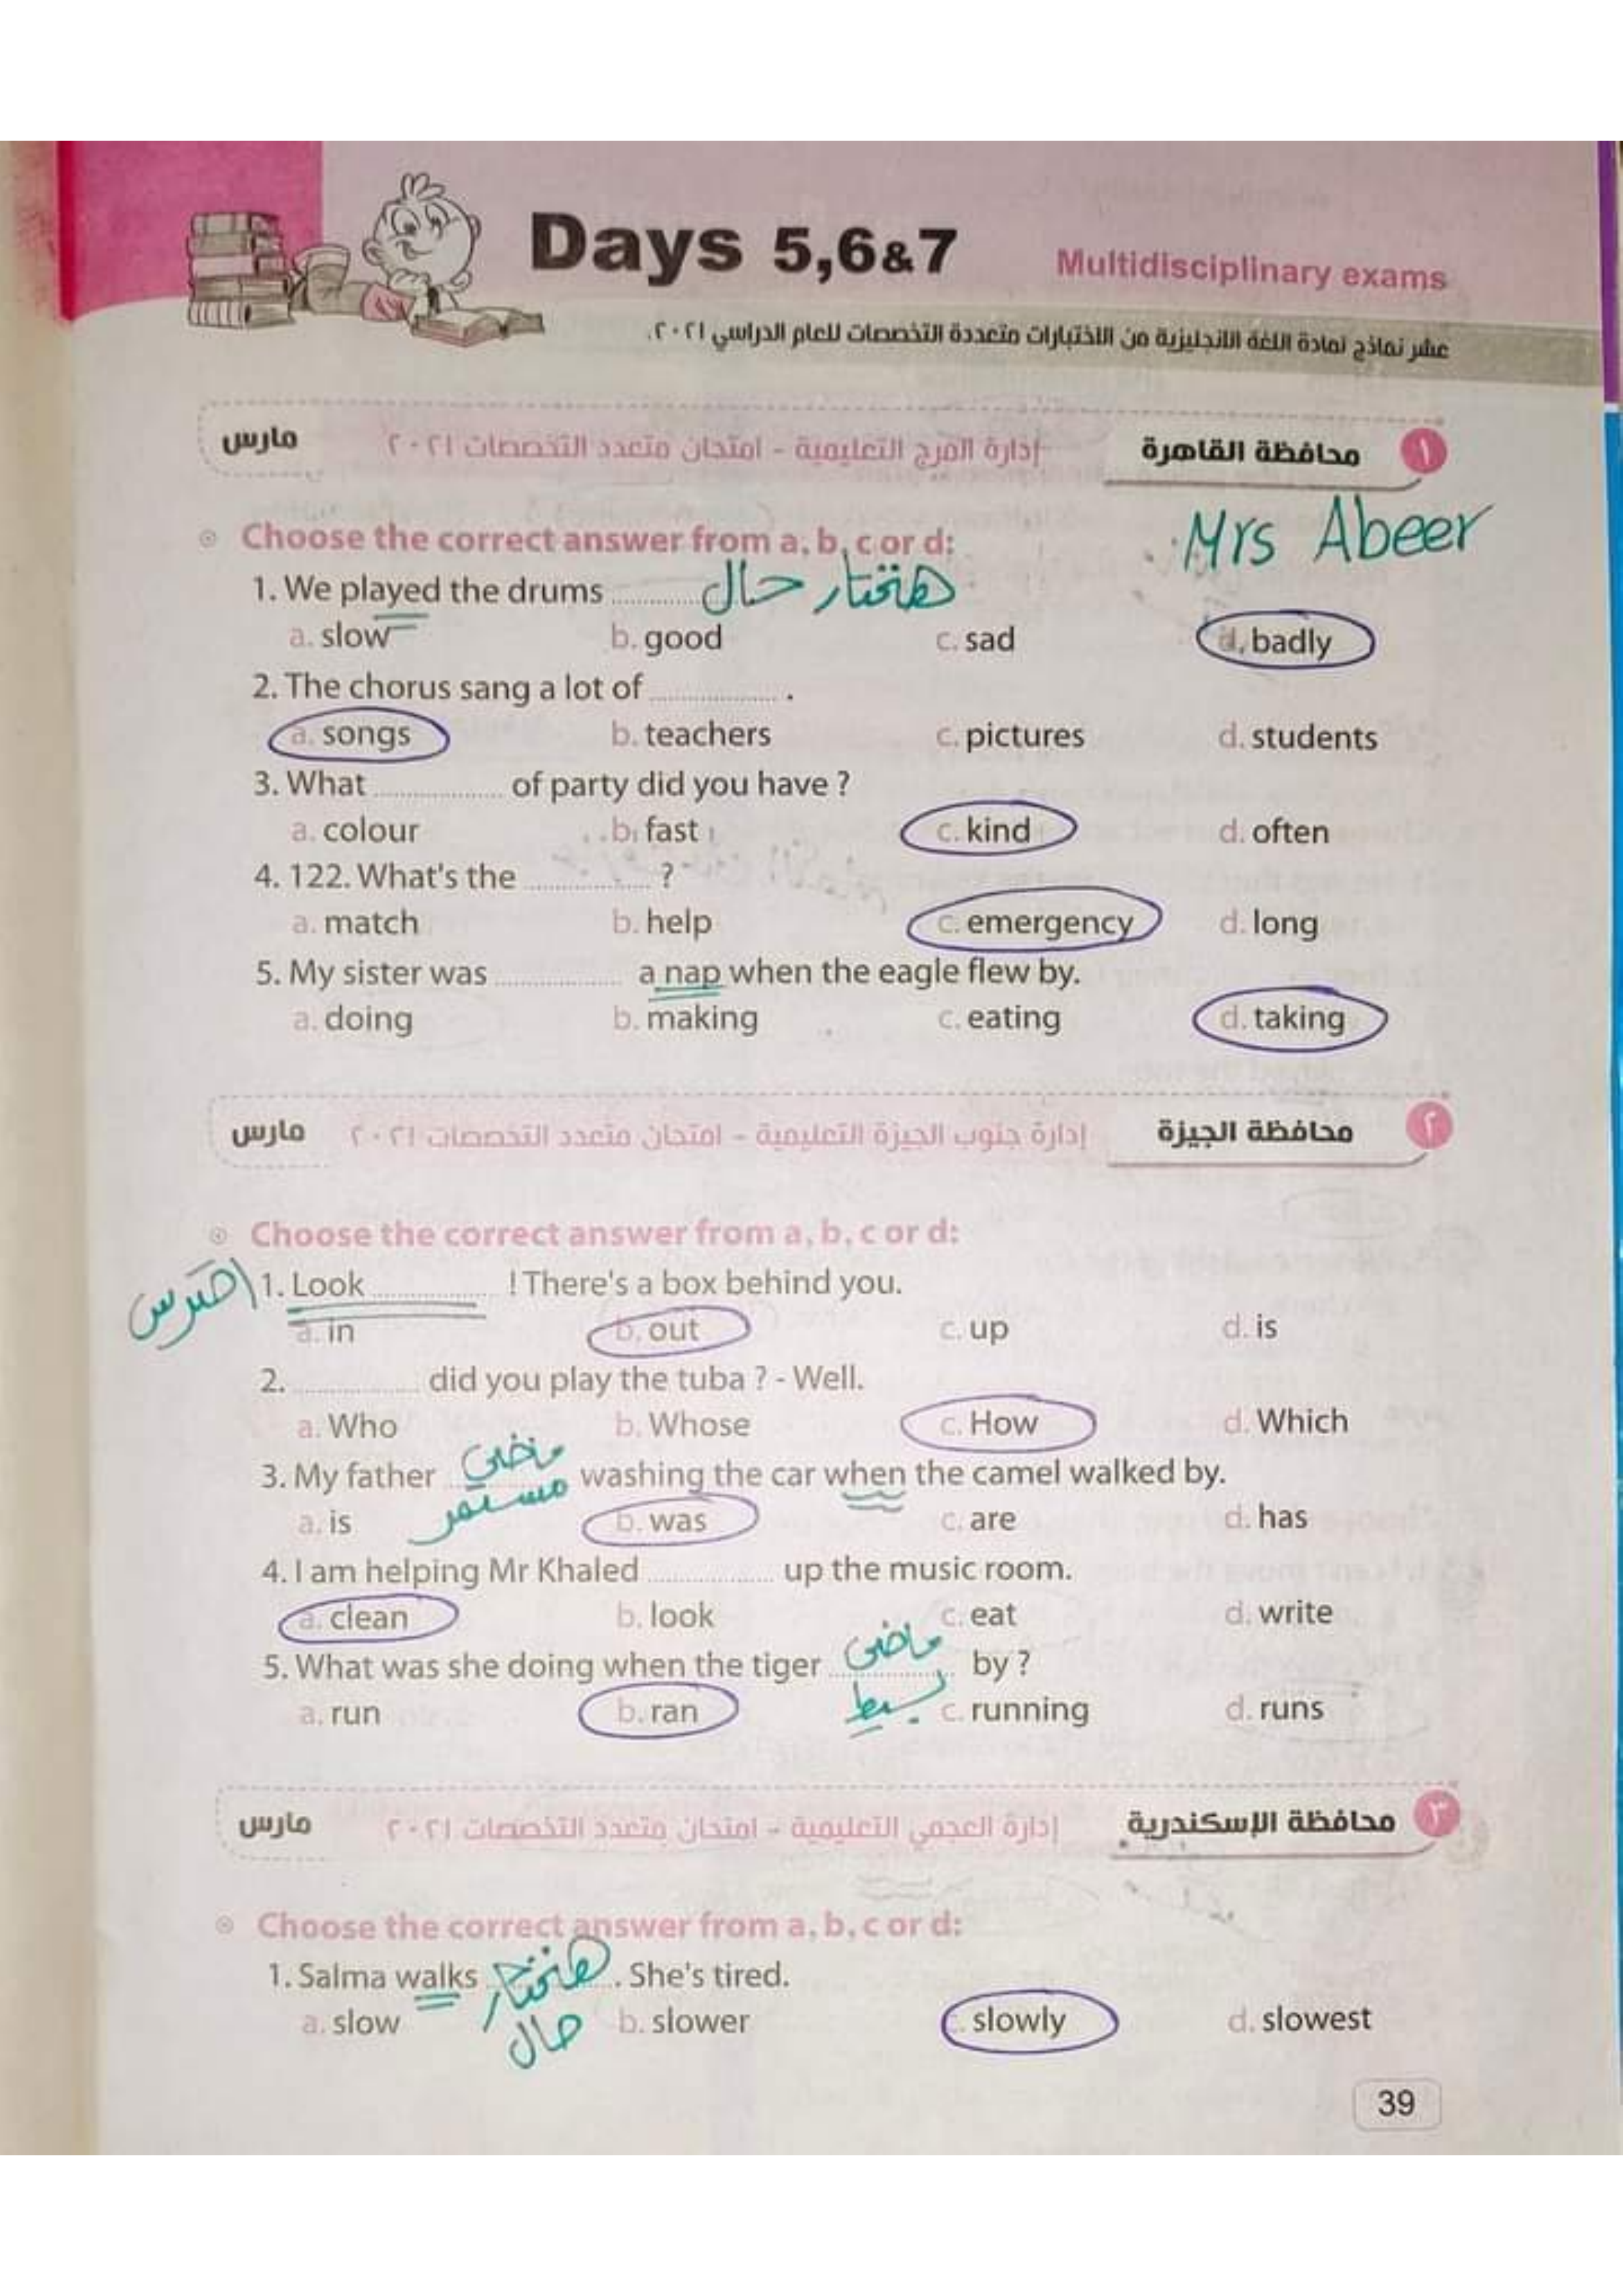 Days 5,6&7
Multidisciplinary exams
عشر نماذج لمادة اللغة الانجليزية من الاختبارات متعددة التخصصات للعام الدراسي ٢٠٢١.
١ محافظة القاهرة إدارة المرج التعليمية - امتحان متعدد التخصصات ٢٠٢١ مارس
Mrs Abeer
Choose the correct answer from a, b, c or d:
1. We played the drums .................. هنختار حال
a. slow b. good c. sad d. badly
2. The chorus sang a lot of .................. .
a. songs b. teachers c. pictures d. students
3. What .................. of party did you have ?
a. colour b. fast c. kind d. often
4. 122. What's the .................. ?
a. match b. help c. emergency d. long
5. My sister was .................. a nap when the eagle flew by.
a. doing b. making c. eating d. taking
٢ محافظة الجيزة إدارة جنوب الجيزة التعليمية - امتحان متعدد التخصصات ٢٠٢١ مارس
Choose the correct answer from a, b, c or d:
احترس 1. Look .................. ! There's a box behind you.
a. in b. out c. up d. is
2. .................. did you play the tuba ? - Well.
a. Who b. Whose c. How d. Which
3. My father ماضى مستمر washing the car when the camel walked by.
a. is b. was c. are d. has
4. I am helping Mr Khaled .................. up the music room.
a. clean b. look c. eat d. write
5. What was she doing when the tiger ماضى بسيط by ?
a. run b. ran c. running d. runs
٣ محافظة الإسكندرية إدارة العجمي التعليمية - امتحان متعدد التخصصات ٢٠٢١ مارس
Choose the correct answer from a, b, c or d:
1. Salma walks هنختار حال . She's tired.
a. slow b. slower c. slowly d. slowest
39